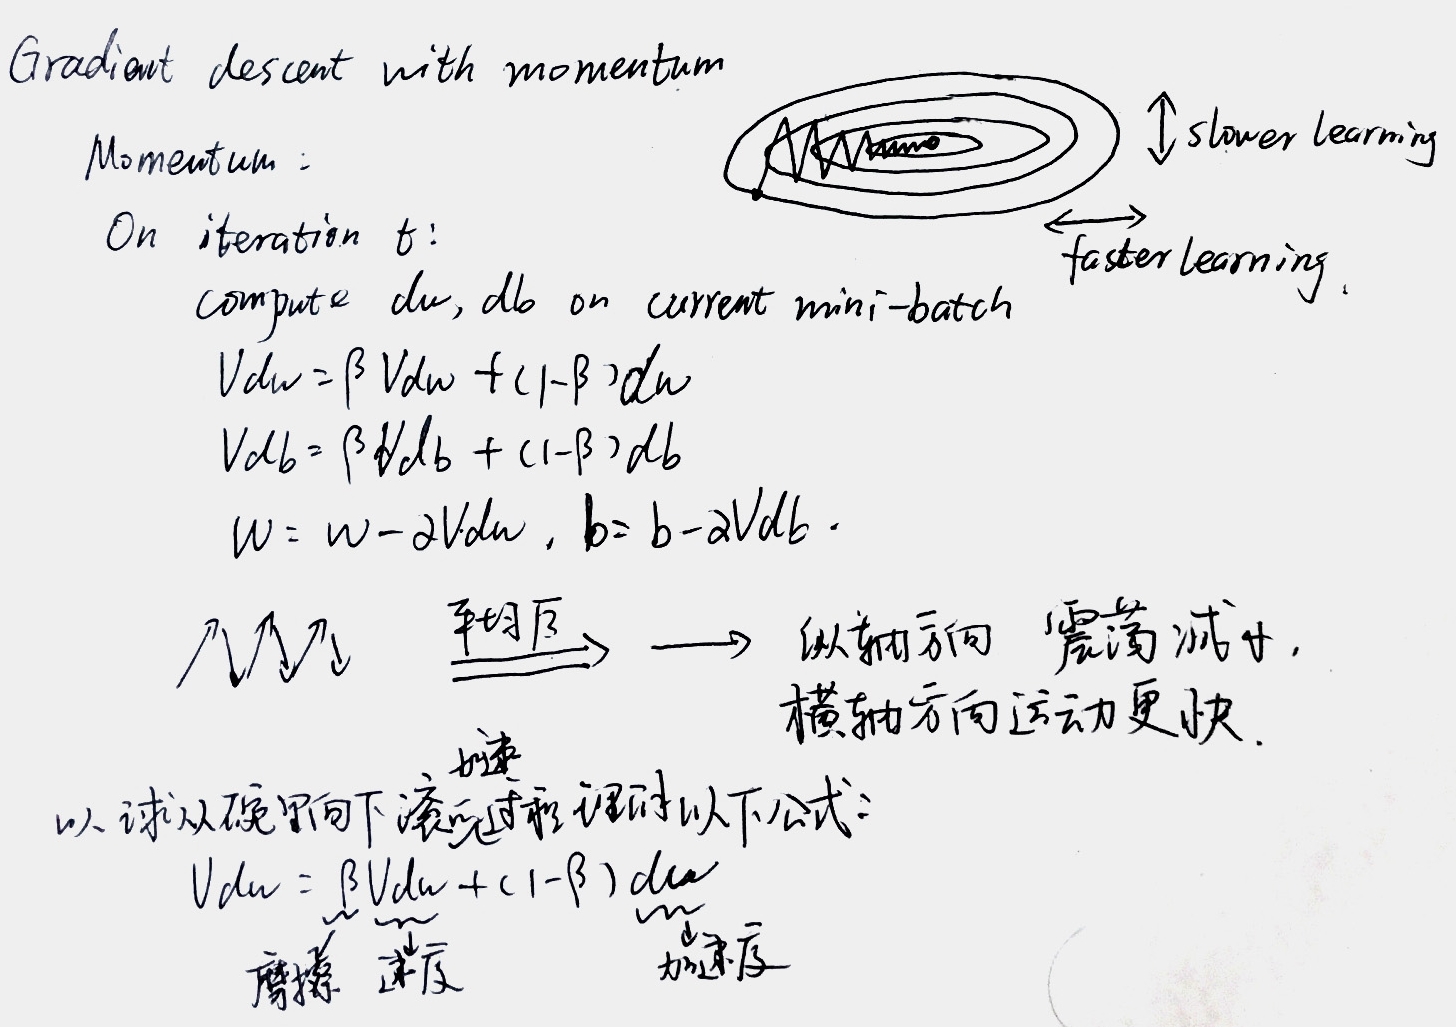 Gradient descent with momentum
slower learning
faster learning.
Momentum:
On iteration t:
compute dw, db on current mini-batch
Vdw = β Vdw + (1-β)dw
Vdb = β Vdb + (1-β)db
w = w - αVdw, b = b - αVdb.
平均后
纵轴方向 震荡减小,
横轴方向运动更快.
加速
以球从碗里向下滚 过程理解以下公式:
Vdw = βVdw + (1-β)dw
磨擦 速度 加速度